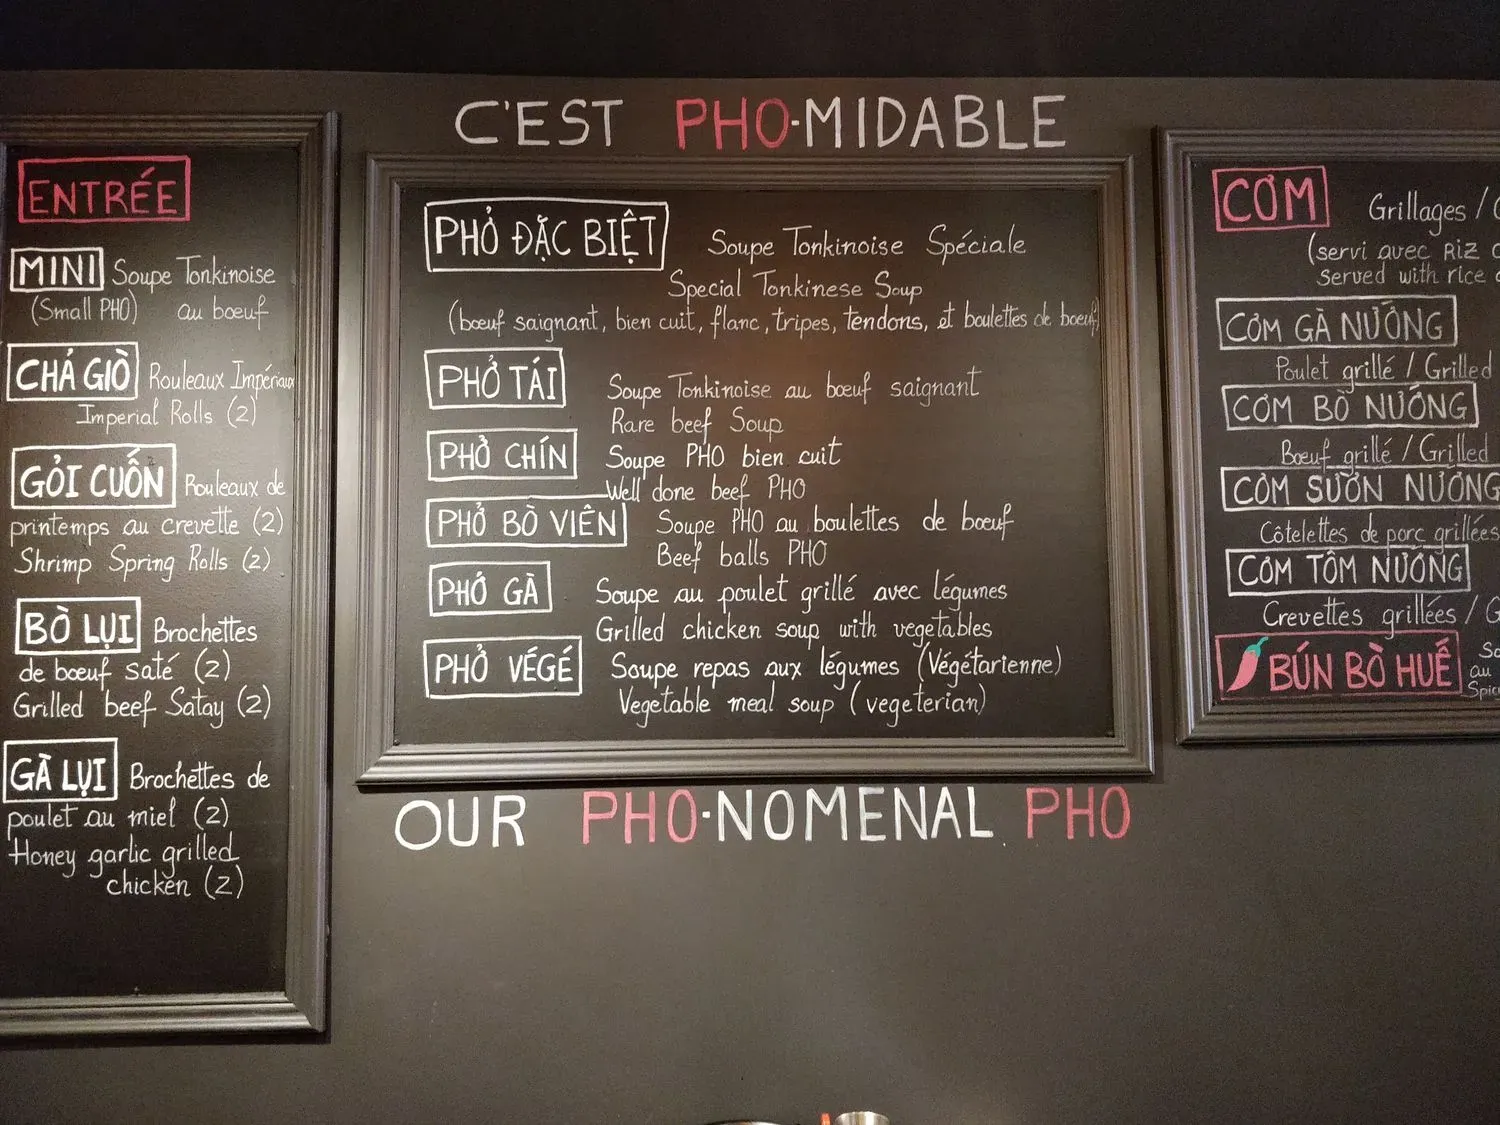 C'EST PHO-MIDABLE
ENTRÉE
MINI Soupe Tonkinoise
(Small PHO) au bœuf
CHÁ GIÒ Rouleaux Impériaux
Imperial Rolls (2)
GỎI CUỐN Rouleaux de
printemps au crevette (2)
Shrimp Spring Rolls (2)
BÒ LỤI Brochettes
de bœuf saté (2)
Grilled beef Satay (2)
GÀ LỤI Brochettes de
poulet au miel (2)
Honey garlic grilled
chicken (2)
PHỞ ĐẶC BIỆT Soupe Tonkinoise Spéciale
Special Tonkinese Soup
(bœuf saignant, bien cuit, flanc, tripes, tendons, et boulettes de bœuf)
PHỞ TÁI Soupe Tonkinoise au bœuf saignant
Rare beef Soup
PHỞ CHÍN Soupe PHO bien cuit
Well done beef PHO
PHỞ BÒ VIÊN Soupe PHO au boulettes de bœuf
Beef balls PHO
PHỞ GÀ Soupe au poulet grillé avec légumes
Grilled chicken soup with vegetables
PHỞ VÉGÉ Soupe repas aux légumes (Végétarienne)
Vegetable meal soup (vegeterian)
OUR PHO-NOMENAL PHO
CƠM Grillages /
(servi avec RIZ
Served with rice
CƠM GÀ NƯỚNG
Poulet grillé / Grilled
CƠM BÒ NƯỚNG
Bœuf grillé / Grilled
CƠM SƯỜN NƯỚNG
Côtelettes de porc grillées
CƠM TÔM NƯỚNG
Crevettes grillées /
BÚN BÒ HUẾ
au